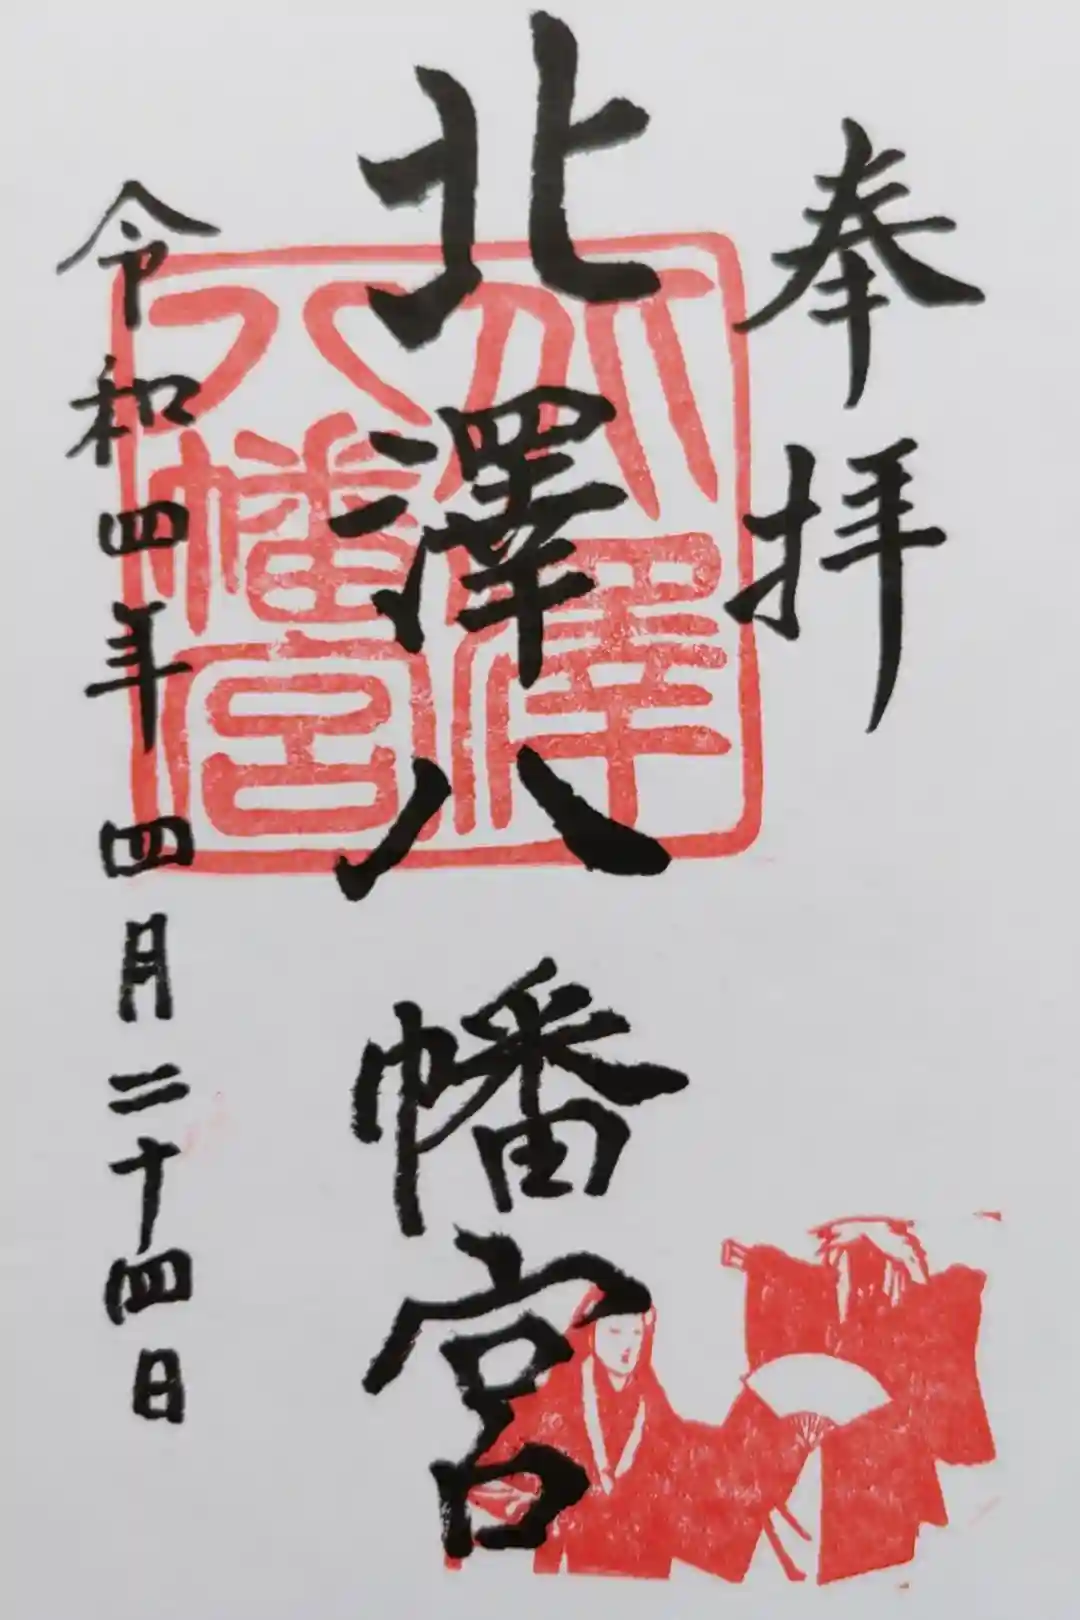 奉拝
北澤八幡宮
北澤八幡宮
令和四年四月二十四日